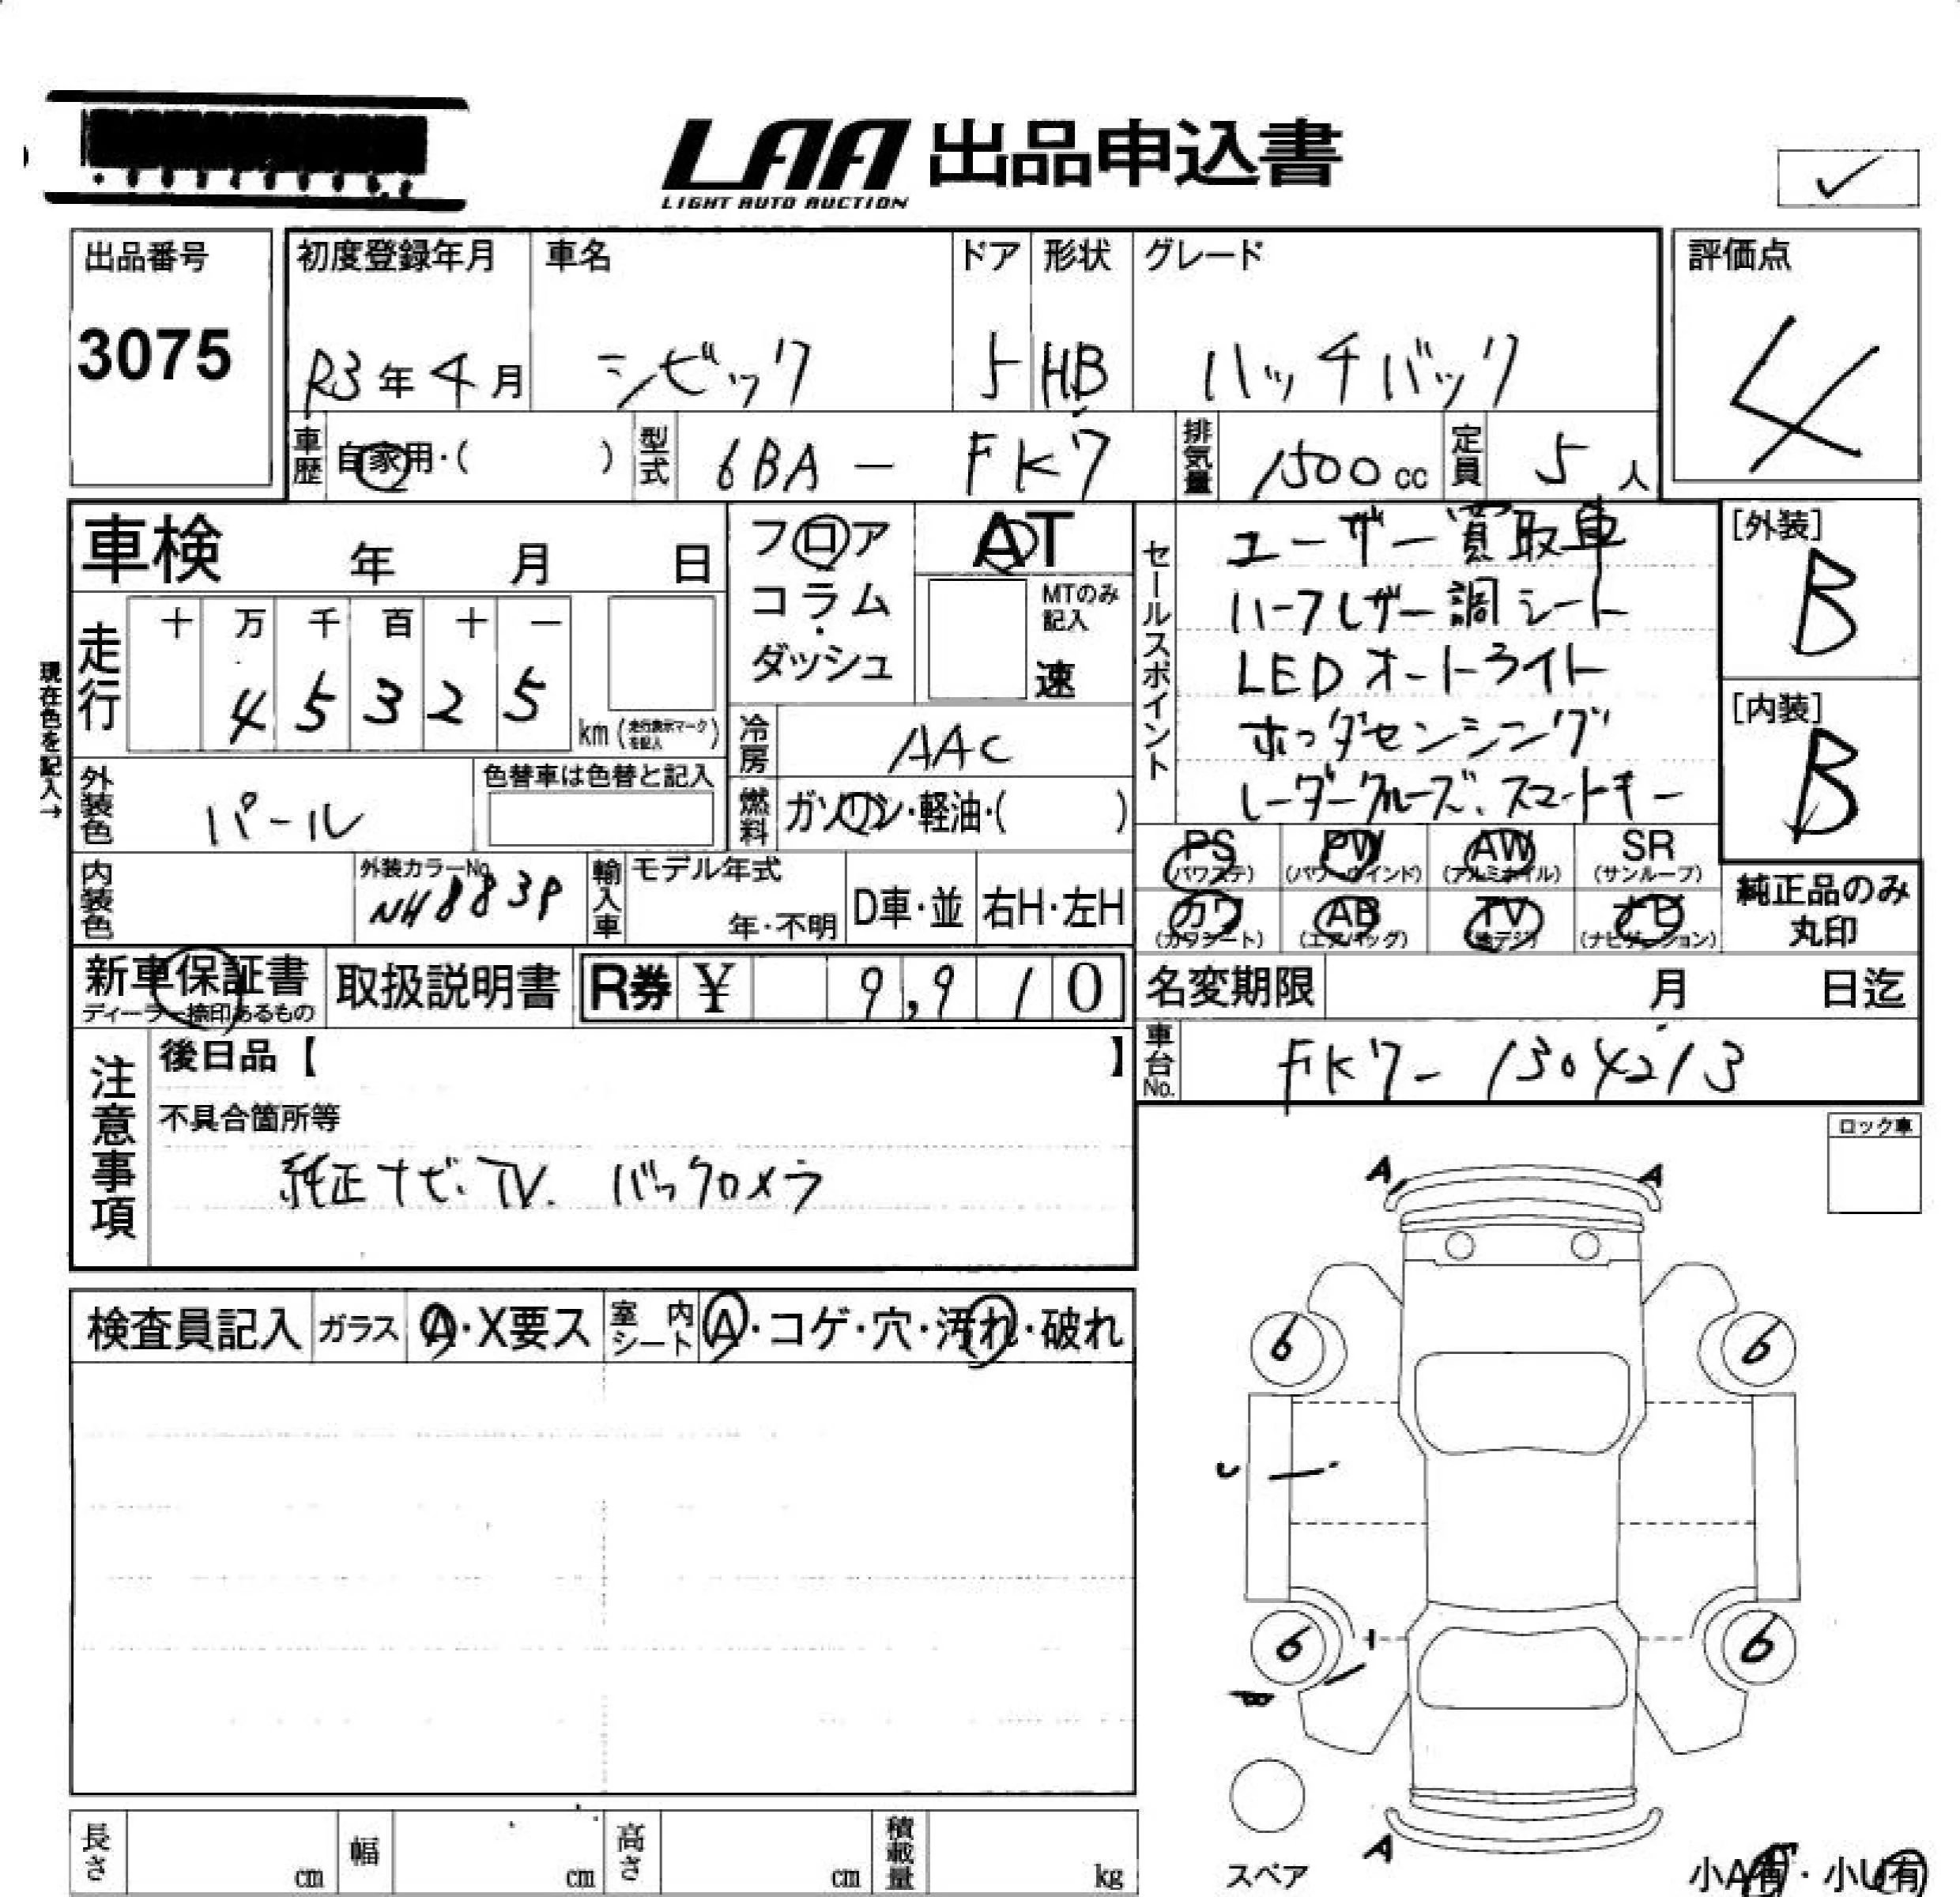 LAA 出品申込書
LIGHT AUTO AUCTION
出品番号
3075
初度登録年月 車名 ドア 形状 グレード
R3年4月 シビック 5 HB ハッチバック
評価点
4
車歴 自家用・( ) 型式 6BA - FK7 排気量 1500cc 定員 5人
車検 年 月 日
フロア
コラム・
ダッシュ
AT
MTのみ記入
速
走行 十 万 千 百 十 一
45325 km(走行表示マークを記入)
現在色を記入→
外装色 パール 色替車は色替と記入
内装色 外装カラーNo. NH883P 輸入車 モデル年式 年・不明 D車・並 右H・左H
冷房 AAC
燃料 ガソリン・軽油・( )
セールスポイント
ユーザー買取車
ハーフレザー調シート
LEDオートライト
ホンダセンシング
レーダークルーズ、スマートキー
[外装]
B
[内装]
B
PS (パワステ) PW (パワーウインド) AW (アルミホイル) SR (サンルーフ)
カワ (カワシート) AB (エアバッグ) TV (地デジ) ナビ (ナビゲーション)
純正品のみ
丸印
新車保証書 取扱説明書 R券 ¥ 9,910
ディーラー捺印あるもの
名変期限 月 日迄
車台No. FK7-1304213
注意事項
後日品【 】
不具合箇所等
純正ナビ、TV、バックカメラ
ロック車
検査員記入 ガラス A・X要ス 室内シート A・コゲ・穴・汚れ・破れ
A A
6 6
6 6
A
スペア
小A有・小U有
長さ cm 幅 cm 高さ cm 積載量 kg